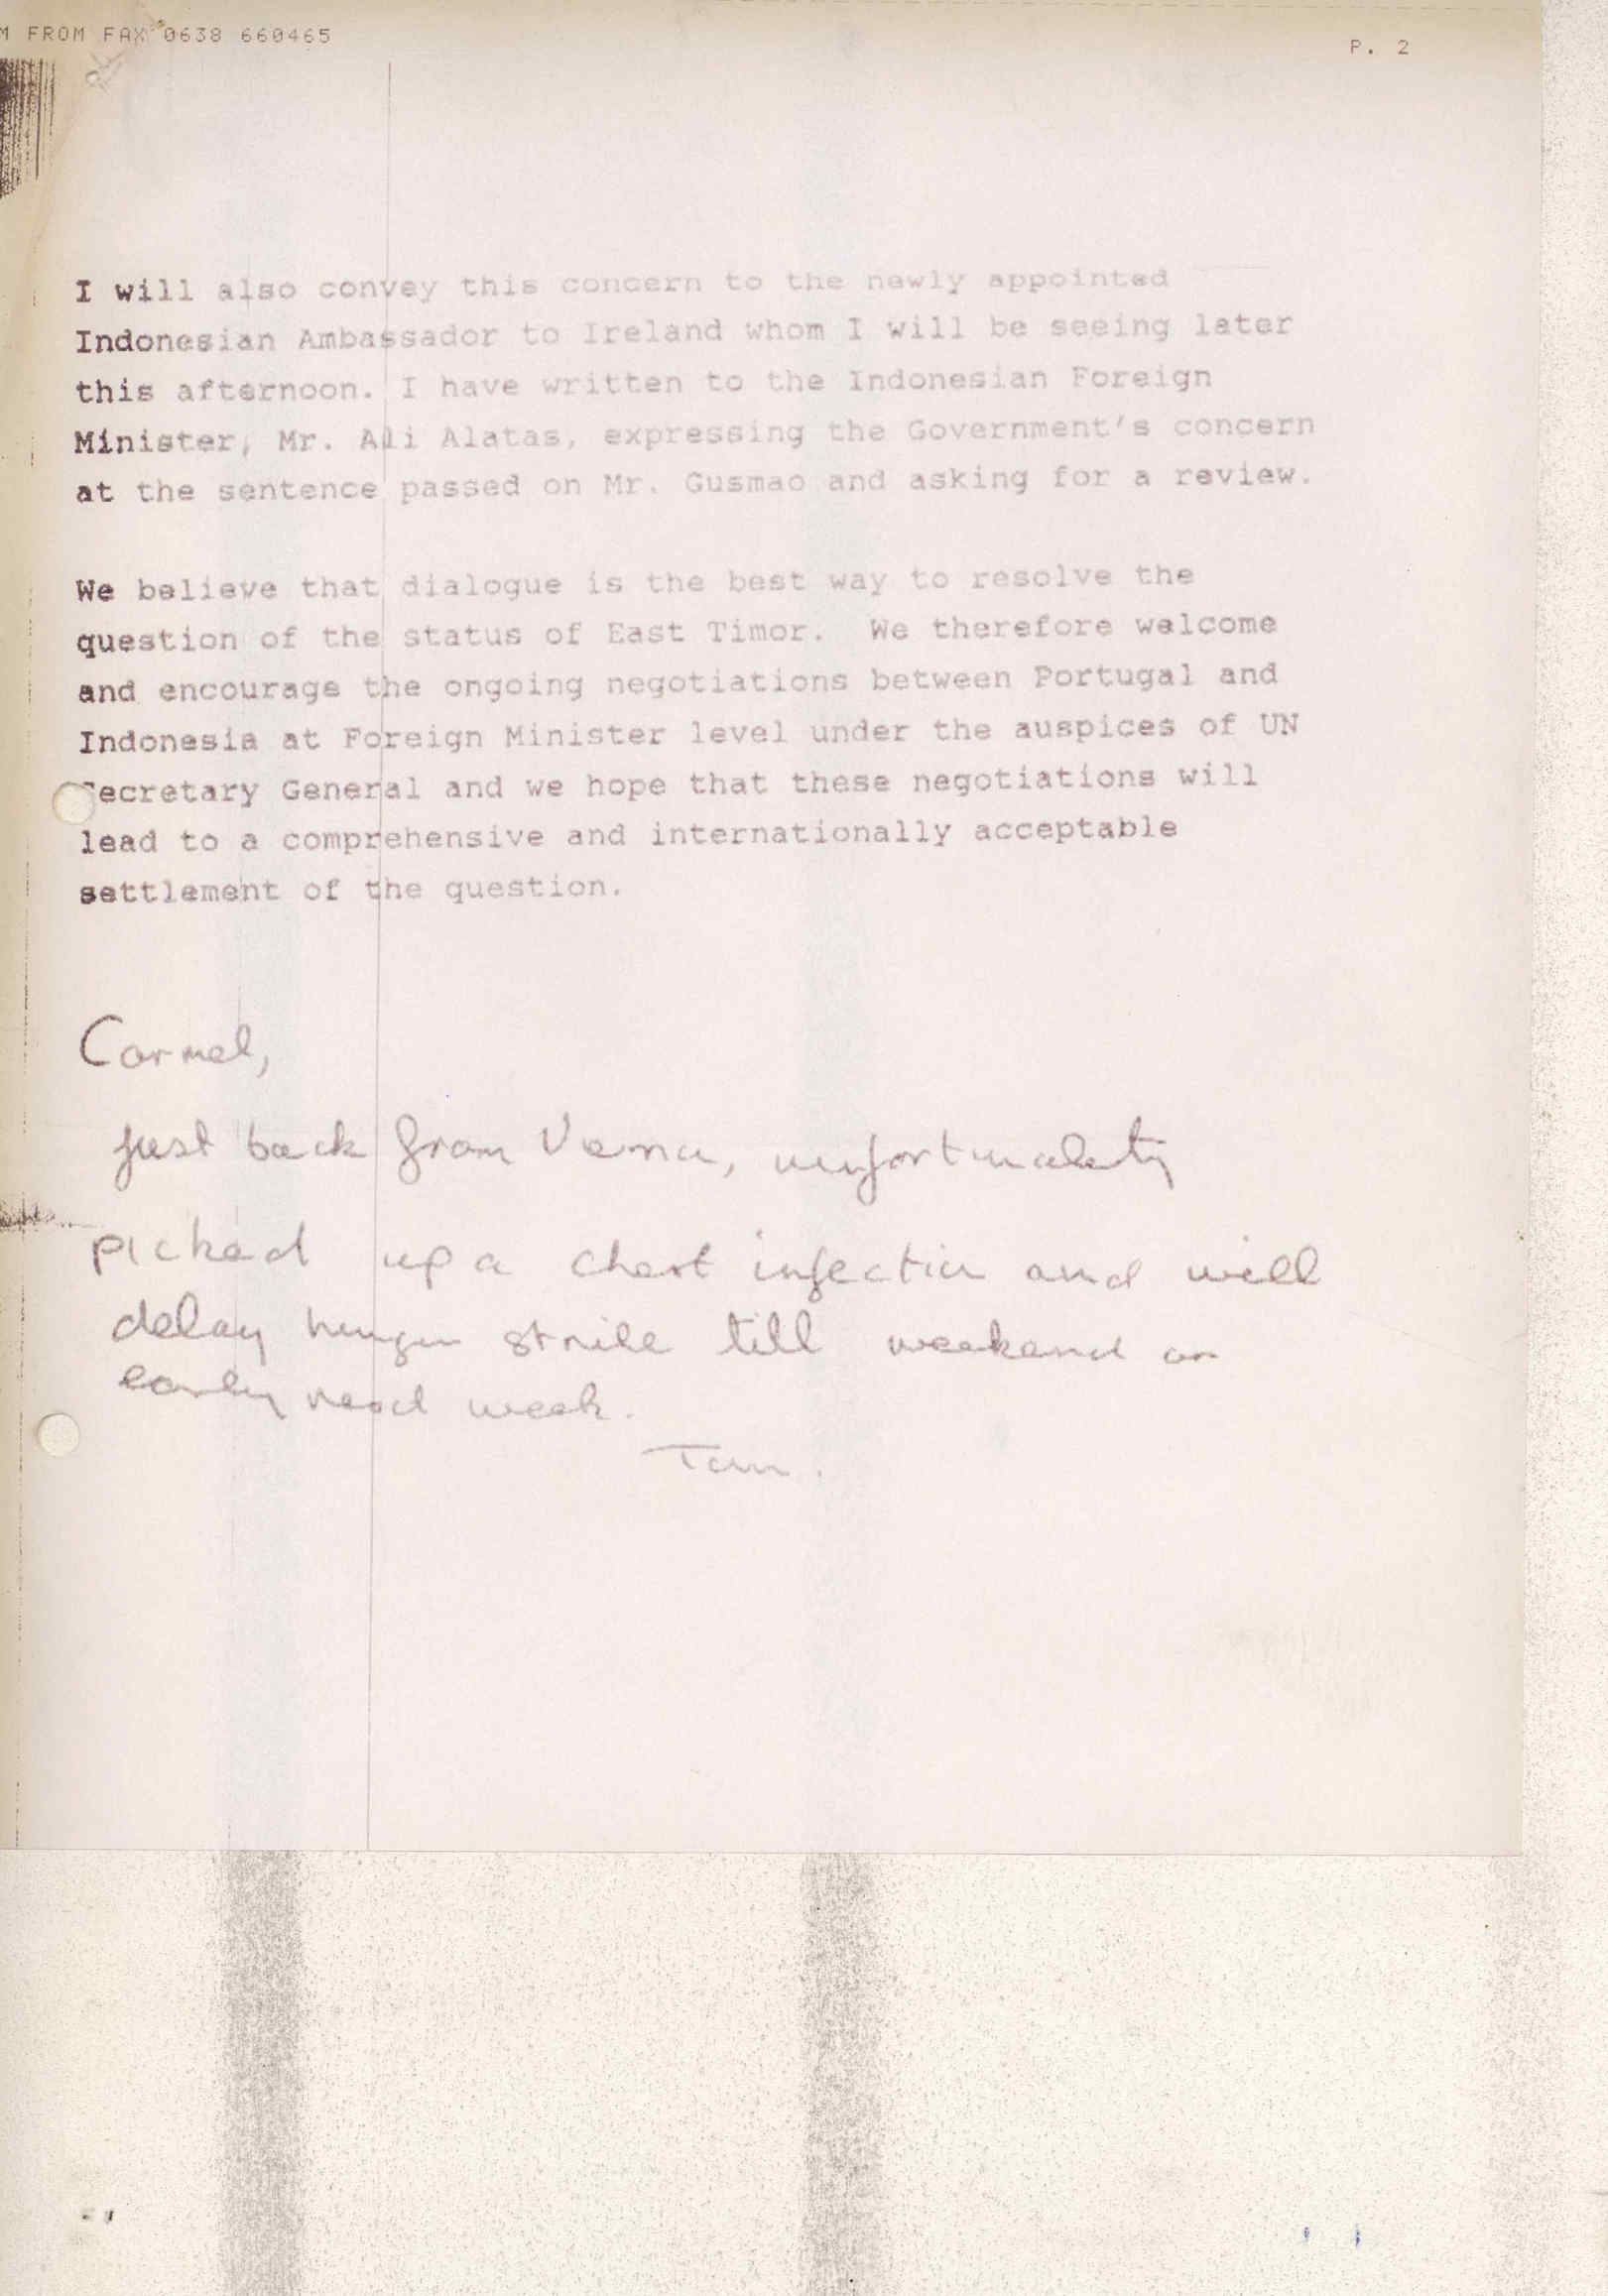 M FROM FAX 0638 660465
P. 2
I will also convey this concern to the newly appointed
Indonesian Ambassador to Ireland whom I will be seeing later
this afternoon. I have written to the Indonesian Foreign
Minister, Mr. Ali Alatas, expressing the Government's concern
at the sentence passed on Mr. Gusmao and asking for a review.
We believe that dialogue is the best way to resolve the
question of the status of East Timor. We therefore welcome
and encourage the ongoing negotiations between Portugal and
Indonesia at Foreign Minister level under the auspices of UN
Secretary General and we hope that these negotiations will
lead to a comprehensive and internationally acceptable
settlement of the question.
Carmel,
just back from Vienna, unfortunately
picked up a chest infection and will
delay hunger strike till weekend or
early next week.
Tom.